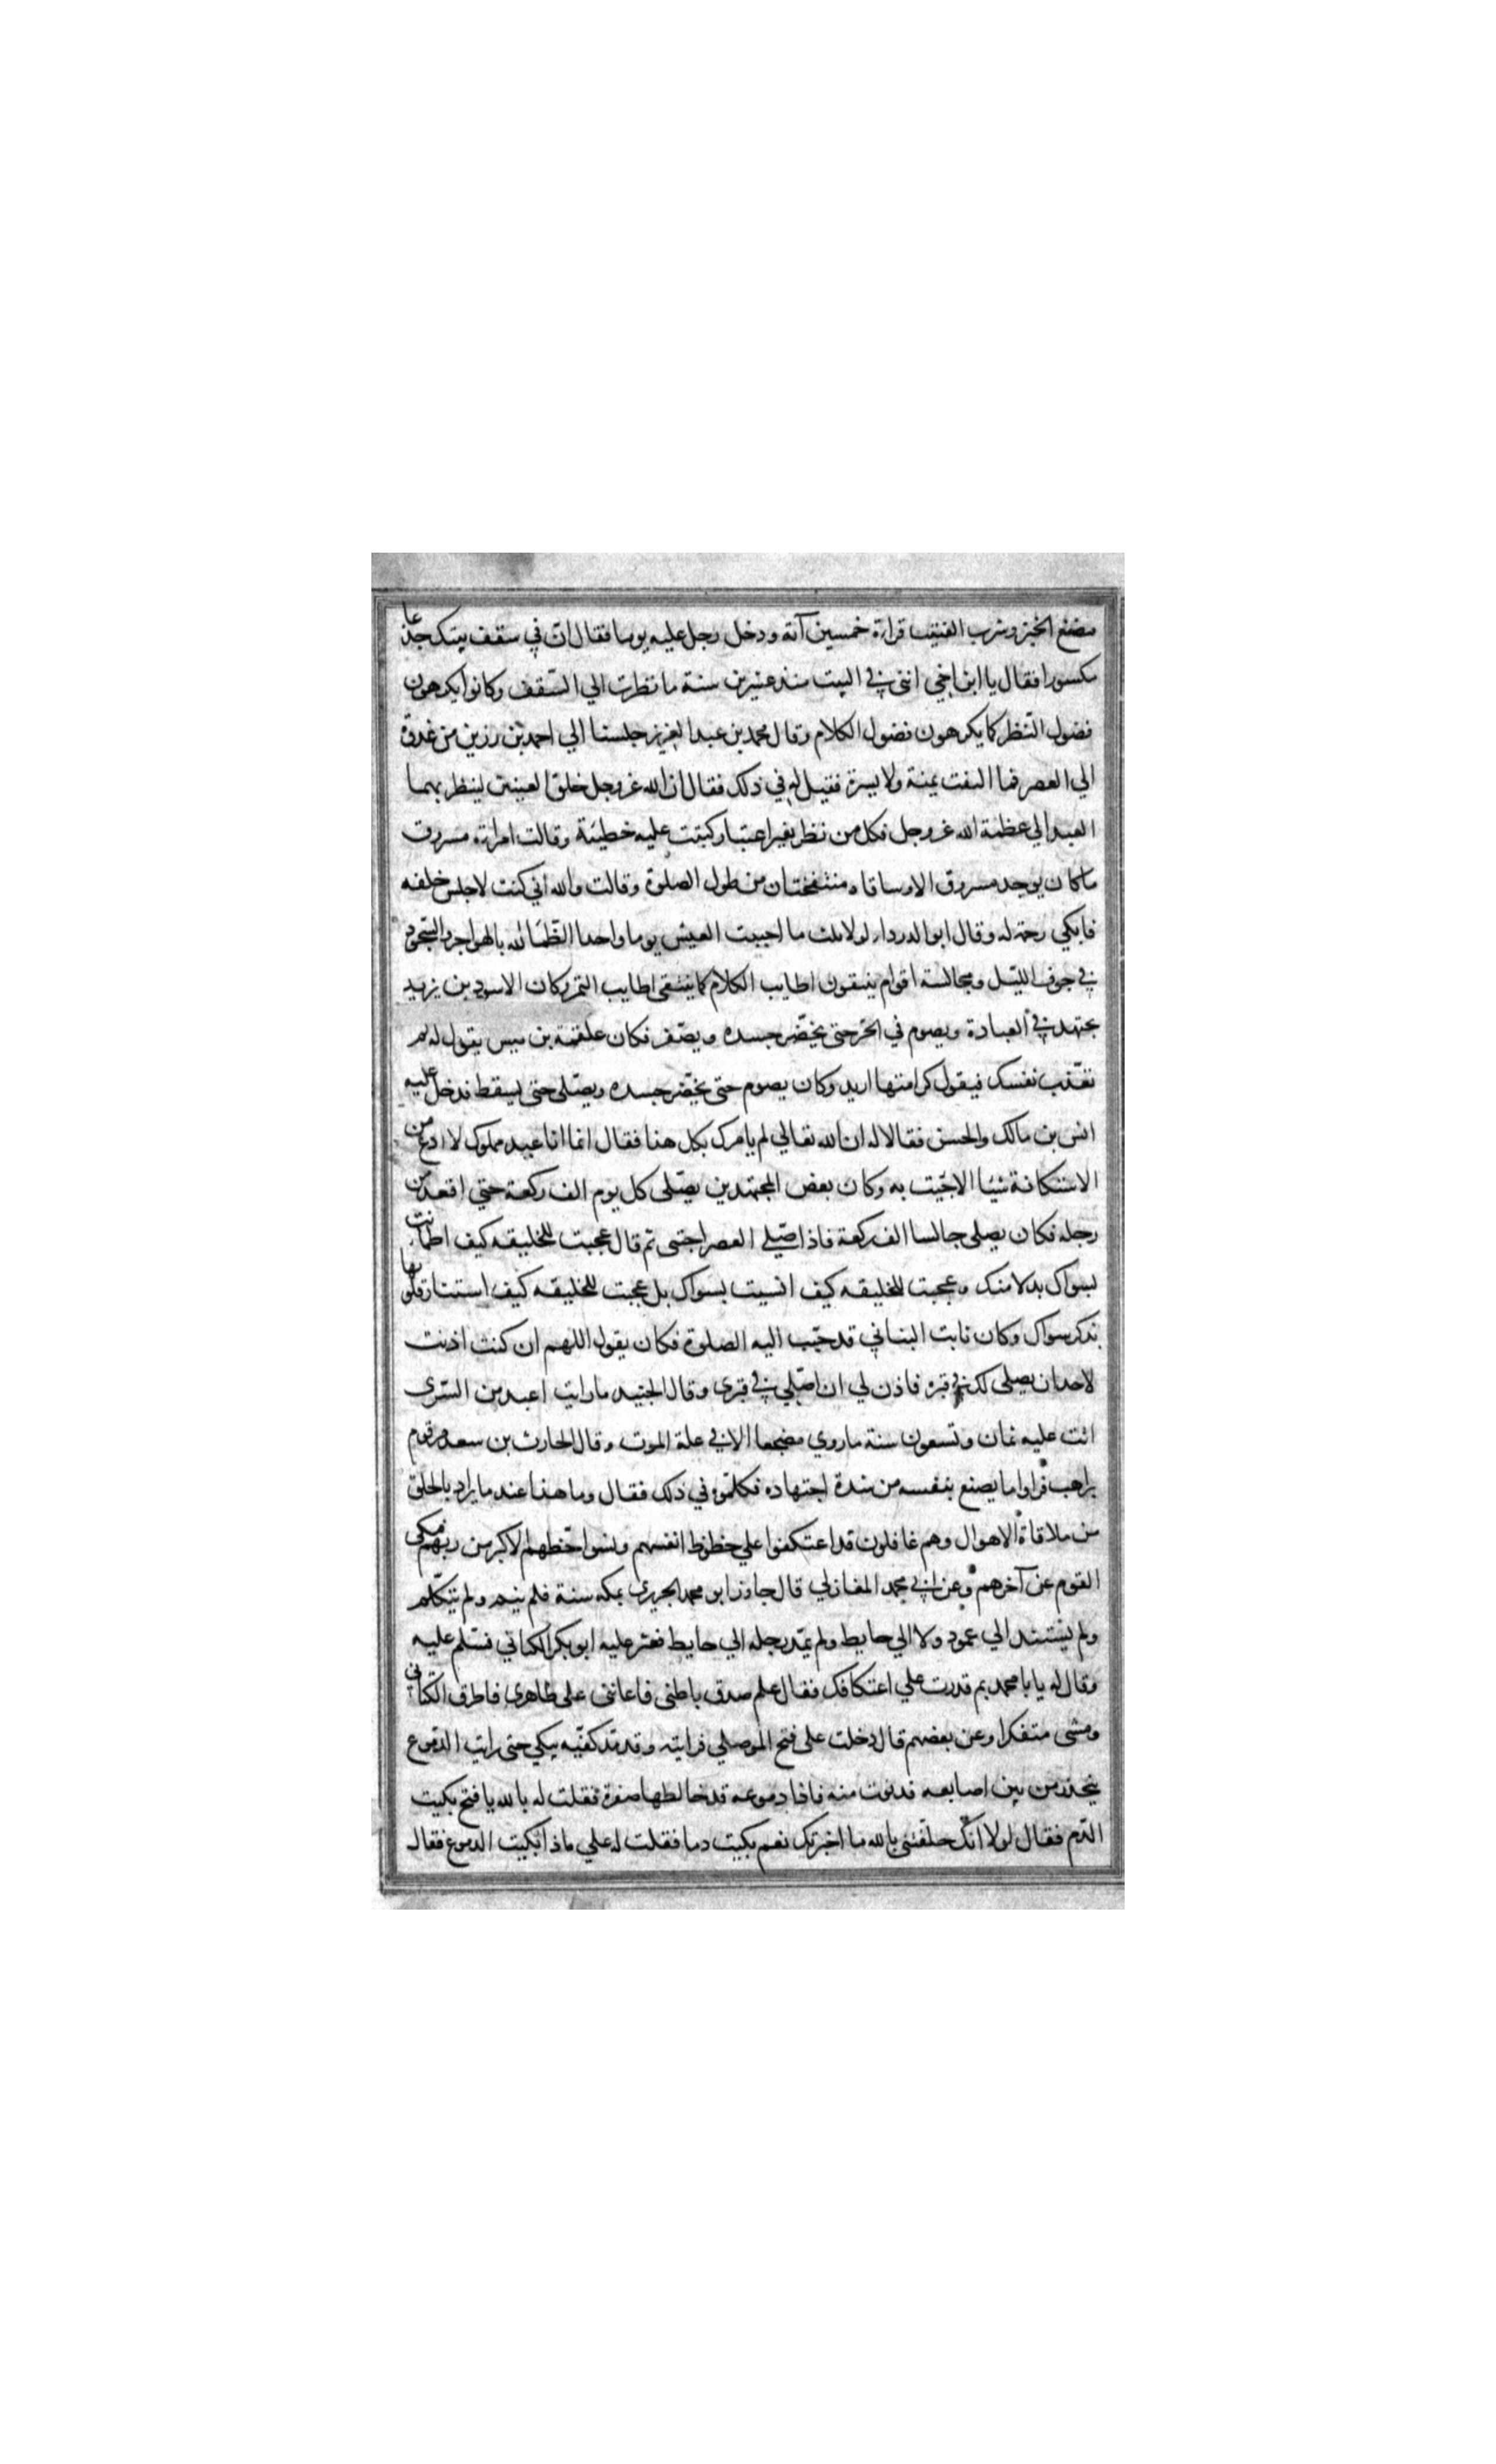 مضغ الخبز وشرب الفتيت قراءة خمسين آية ودخل رجل عليه يوما فقال ان في سقف بيتك جذعا
مكسورا فقال يا ابن اخي انني في البيت منذ عشرين سنة ما نظرت الي السقف وكانوا يكرهون
فضول النظر كما يكرهون فضول الكلام وقال محمد بن عبد العزيز جلسنا الي احمد بن رزين من غدوة
الي العصر فما التفت يمنة ولا يسرة فقيل له في ذلك فقال ان الله عز وجل خلق العينين لينظر بهما
العبد الي عظمة الله عز وجل فكل من نظر بغير اعتبار كتبت عليه خطيئة وقالت امراة مسروق
ما كان يوجد مسروق الا وساقاه منتفختان من طول الصلوة وقالت والله اني كنت لاجلس خلفه
فابكي رحمة له وقال ابو الدرداء لولا ثلث ما احببت العيش يوما واحدا الظما لله بالهواجر والسجود
في جوف الليل ومجالسة اقوام ينتقون اطايب الكلام كما ينتقي اطايب التمر وكان الاسود بن يزيد
يجتهد في العبادة ويصوم في الحر حتي يخضر جسده ويصفر فكان علقمة بن قيس يقول له لم
تعذب نفسك فيقول كرامتها اريد وكان يصوم حتي يخضر جسده ويصلي حتي يسقط فدخل عليه
انس بن مالك والحسن فقالا له ان الله تعالي لم يامرك بكل هذا فقال انما انا عبد مملوك لا ادع من
الاستكانة شيئا الا جئت به وكان بعض المجتهدين يصلي كل يوم الف ركعة حتي اقعد من
رجله فكان يصلي جالسا الف ركعة فاذا صلي العصر احتبي ثم قال عجبت للخليقه كيف اطمانت
بسواك بدلا منك وعجبت للخليقه كيف انسيت بسواك بل عجبت للخليقه كيف استنار قلوبها
بذكر سواك وكان ثابت البناني قد حبب اليه الصلوة فكان يقول اللهم ان كنت اذنت
لاحد ان يصلي لك في قبره فاذن لي ان اصلي في قبري وقال الجنيد ما رايت اعبد من السري
اتت عليه ثمان وتسعون سنة ما روي مضجعا الا في علة الموت وقال الحارث بن سعد مر قوم
براهب فراوا ما يصنع بنفسه من شدة اجتهاده فكلموه في ذلك فقال وما هذا عند ما يراد بالخلق
من ملاقاة الاهوال وهم غافلون قد اعتكفوا علي حظوظ انفسهم ونسوا حظهم الاكبر من ربهم فبكي
القوم عن آخرهم وعن ابي محمد المغازلي قال جاور ابو محمد الحريري بمكه سنة فلم ينم ولم يتكلم
ولم يستند الي عمود ولا الي حايط ولم يمد رجله الي حايط فعثر عليه ابو بكر الكتاني فسلم عليه
وقال له يا با محمد بم قدرت علي اعتكافك فقال علم صدق باطني فاعانني علي ظاهري فاطرق الكتاني
ومشي متفكرا وعن بعضهم قال دخلت علي فتح الموصلي فرايته وقد مد كفيه يبكي حتي رايت الدموع
يتحدر من بين اصابعه فدنوت منه فاذا دموعه قد خالطها صفرة فقلت له بالله يا فتح بكيت
الدم فقال لولا انك حلفتني بالله ما اخبرتك نعم بكيت دما فقلت له علي ماذا بكيت الدموع فقال